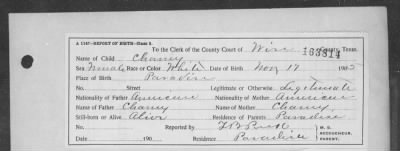 A 1247—REPORT OF BIRTH—Class 5.
To the Clerk of the County Court of Wise County, Texas.
163814
Name of Child Chaney
Sex Female Race or Color White Date of Birth Nov 17 190
Place of Birth Paradise
No. Street Legitimate or Otherwise Legitimate
Nationality of Father American Nationality of Mother American
Name of Father Chaney Name of Mother Chaney
Still-born or Alive Alive Residence of Parents Paradise
No. Reported by
Date 190 Residence Paradise
M. D.
PARENT.